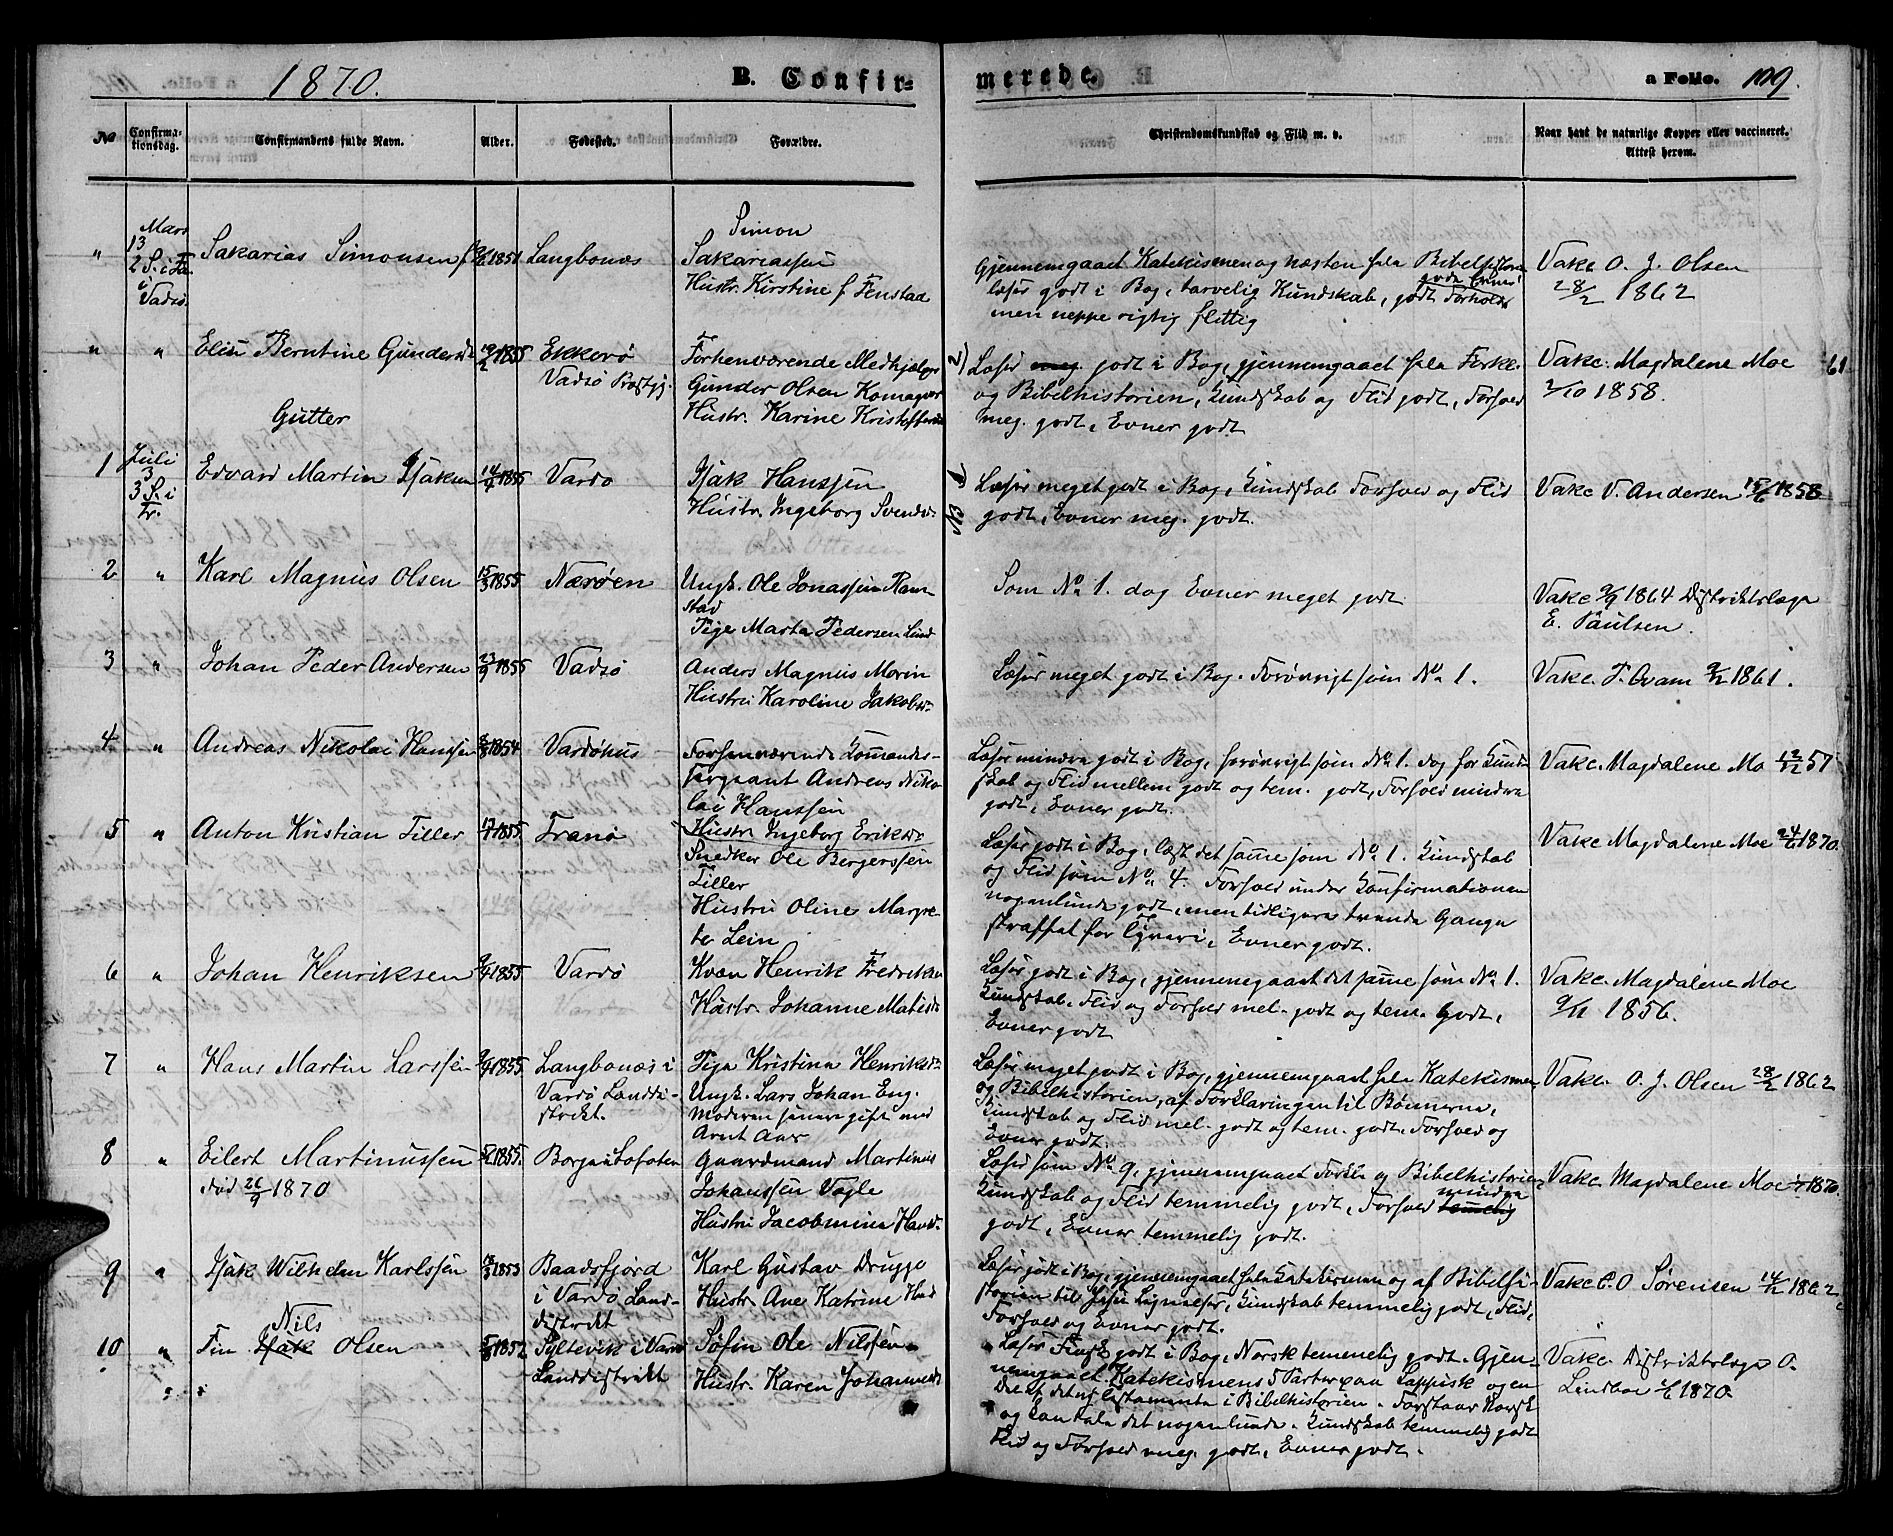 1870.
B. Confir-
merede.
a Folio. 109.
No
Confirma-
tionsdag.
Confirmandens fulde Navn.
Alder.
Fødested.
Forældre.
Christendomskundskab og Flid m. v.
Naar havt de naturlige Kopper eller vaccineret.
Attest herom.
" Mars
13
2 S. i Fa.
i
Vadsø
Sakarias Simonsen
1851
Langbonæs
Simon
Sakariassen
Hustr. Kirstine f. Finstad
Gjennemgaaet Katekismen og næsten hele Bibelhistorien
læser godt i Bog, tarvelig Kundskab, godt Forhold
gode Evner
men neppe rigtig flittig
Vakc. O. J. Olsen
28/2 1862
" "
Elen Berntine Gundersd.
19/2 1855
Ekkerø
Vadsø Præstgj.
Forhenværende Medhjælper
Gunder Olsen Komagvær
Hustr. Karine Kristoffersd.
2) Læser meg. godt i Bog, gjennemgaaet hele Forkl.
og Bibelhistorien, Kundskab og Flid godt, Forhold
meg. godt, Evner godt
Vakc. Magdalene Moe
2/10 1858.
61
Gutter
1
Juli
3
3 S. i
Tr.
Edvard Martin Isaksen
14/7 1855
Vardø
Isak Hanssen
Hustr. Ingeborg Svensd.
Læser meget godt i Bog, Kundskab Forhold og Flid
godt, Evner meg. godt.
Vakc V. Andersen 15/6 1858
2 "
Karl Magnus Olsen
15/3 1855
Nærøen
Ungk. Ole Jonassen Ram-
stad
Pige Marta Pedersen Lind
Som No 1. dog Evner meget godt
Vakc 9/9 1864 Distriktslæge
E. Paulsen.
3 "
Johan Peder Andersen
23/9 1855
Vadsø
Anders Magnus Morin
Hustru Karoline Jakobsd.
Læser meget godt i Bog. Forøvrigt som No 1.
Vakc. P. Qvam 9/12 1861.
4 "
Andreas Nikolai Hanssen
1854
Vardøhus
Forhenværende Komander-
sergeant Andreas Niko-
lai Hanssen
Hustr. Ingeborg Eriksd.
Læser mindre godt i Bog, forøvrigt som No 1. dog for Kund-
skab og Flid mellem godt og tem. godt, Forhold mindre
godt, Evner godt.
Vakc. Magdalene Mo 12/12 57
5 "
Anton Kristian Tiller
17/7 1855
Tranø
Snedker Ole Bergerssen
Tiller
Hustru Oline Margre-
te Lein
Læser godt i Bog, læst det samme som No 1. Kundskab
og Flid som No 4. Forhold under Konfirmationen
nogenlunde godt, men tidligere trende Gange
straffet for Tyveri, Evner godt.
Vakc Magdalene Moe 24/6 1870.
6 "
Johan Henriksen
9/4 1855
Vardø
Kvæn Henrik Fredriksen
Hustr. Johanne Matisd.
Læser godt i Bog, gjennemgaaet det samme som No 1.
Kundskab, Flid og Forhold mel. godt og tem. godt,
Evner godt
Vakc. Magdalene Moe
9/11 1856.
7 "
Hans Martin Larssen
9/9 1855
Langbonæs i
Vardø Landdi-
strekt.
Pige Kristina Henriksd.
Ungk. Lars Johan Eng.
Moderen senere gift med
Arnt Aas
Læser meget godt i Bog, gjennemgaaet hele Katekismen
og Bibelhistorien, af Forklaringen til Bønnerne,
Kundskab og Flid mel. godt og tem. godt. Forhold og
Evner godt.
Vakc. O. J. Olsen 28/2 1862
8 "
Eilert Martinussen
død 26/9 1870
1855.
Borge i Lofoten
Gaardmand Martinus
Johanssen Vagle
Hustru Jacobmina Hansd.
Læser som No 9, gjennemgaaet Forkl. og Bibelhistorien,
Kundskab og Flid temmelig godt, Forhold temmelig
mindre
godt, Evner temmelig godt.
Vakc Magdalene Moe 1870.
9 "
Isak Wilhelm Karlssen
1853
Baadsfjord
i Vardø Land-
distrekt
Karl Gustav Drugge
Hustr. Ane Katrine
Læser godt i Bog, gjennemgaaet hele Katekismen og af Bibelhi-
storien til Jesu Lignelser, Kundskab temmelig godt, Flid,
Forhold og Evner godt.
Vakc C. O Sørensen 14/2 1862
10 "
Nils
Fin Isak Olsen
1852
Syltevik i Vardø
Landdistrikt
Søfin Ole Nilssen
Hustr. Karen Johannesd.
Læser Finsk godt i Bog, Norsk temmelig godt. Gjen-
nemgaaet Katekismens 5 Parter paa Lappisk og en
Del af det ny Testamente i Bibelhistorien. Forstaar Norsk
og kan tale det nogenlunde. Kundskab temmelig godt
Flid og Forhold meg. godt, Evner godt.
Vakc. Distriktslæge O.
Lindboe 1870.